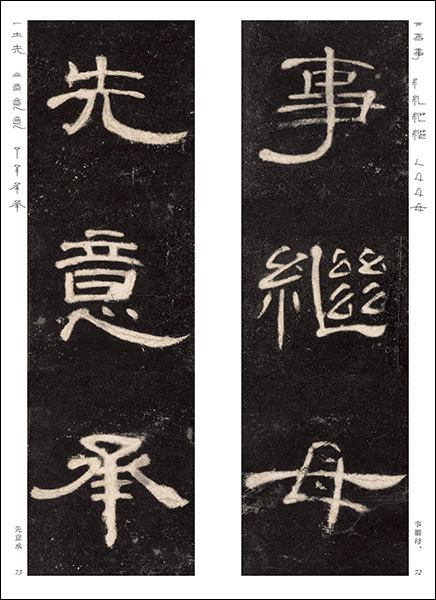 事繼母
事繼母、
72
先意承
先意承
73